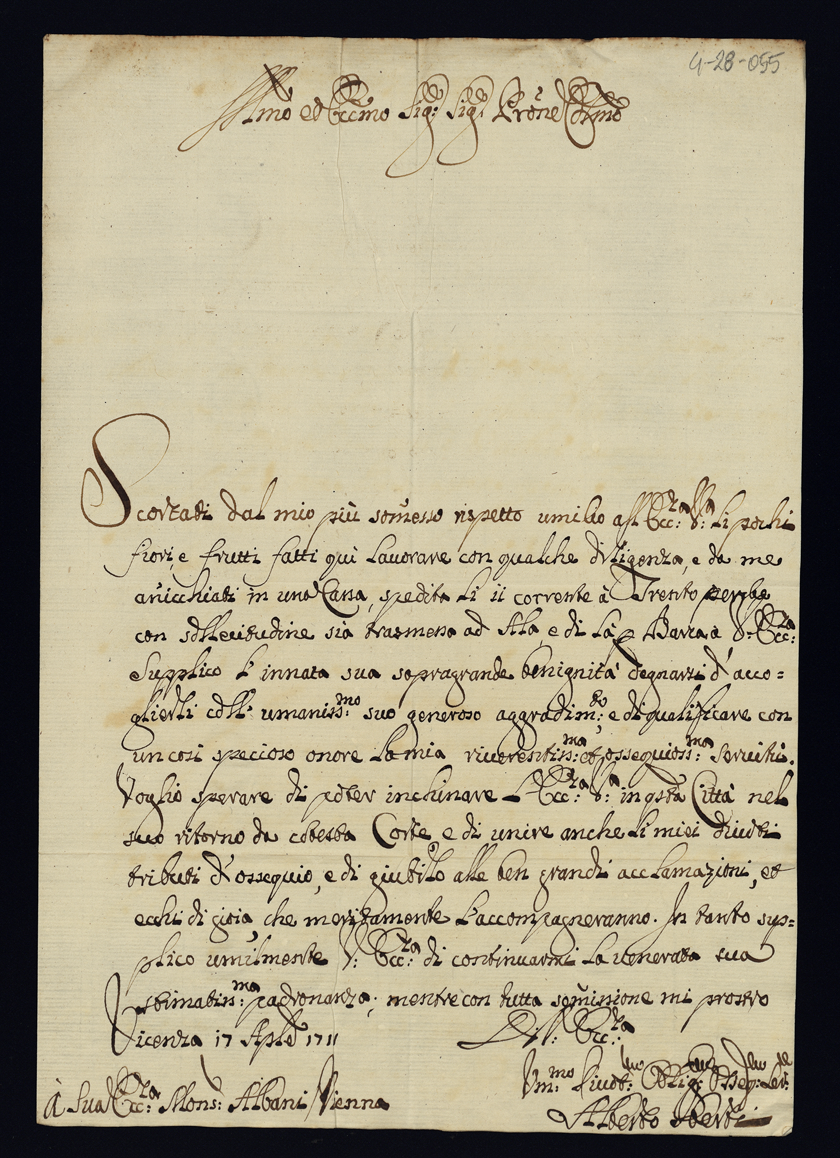 4-28-055
Ill.mo ed Ecc.mo Sig: Sig.r Pröne Col.mo
Scortati dal mio più somesso rispetto umilio all'Ecc:za V:ra li pochi
fiori, e frutti fatti qui lavorare con qualche diligenza, e da me
anicchiati in una Cassa, spedita li 11 corrente à Trento perche
con sollecitudine sia trasmessa ad Ala e di là p Barca à V: Ecc:za
Supplico l'innata sua sopragrande benignità degnarsi d'acco=
glierli coll' umaniss:mo suo generoso aggradim:to, e di qualificare con
un così specioso onore la mia riverentiss:ma et ossequioss:ma servitù.
Voglio sperare di poter inchinare l'Ecc:za V:ra in qsta Città nel
suo ritorno da cotesta Corte e di unire anche li miei divoti
tributi d'ossequio, e di giubilo alle ben grandi acclamazioni, et
echi di gioia, che meritamente l'accompagneranno. In tanto sup=
plico umilmente V: Ecc:za di continuarmi la venerata sua
stimatiss:ma padronanza; mentre con tutta somissione mi prostro
Vicenza 17 Aple 1711
Di V: Ecc:za
Um:mo Divot:mo Oblig:mo Osseq:mo Ser:re
à Sua Ecc:za Mons: Albani Vienna
Alberto